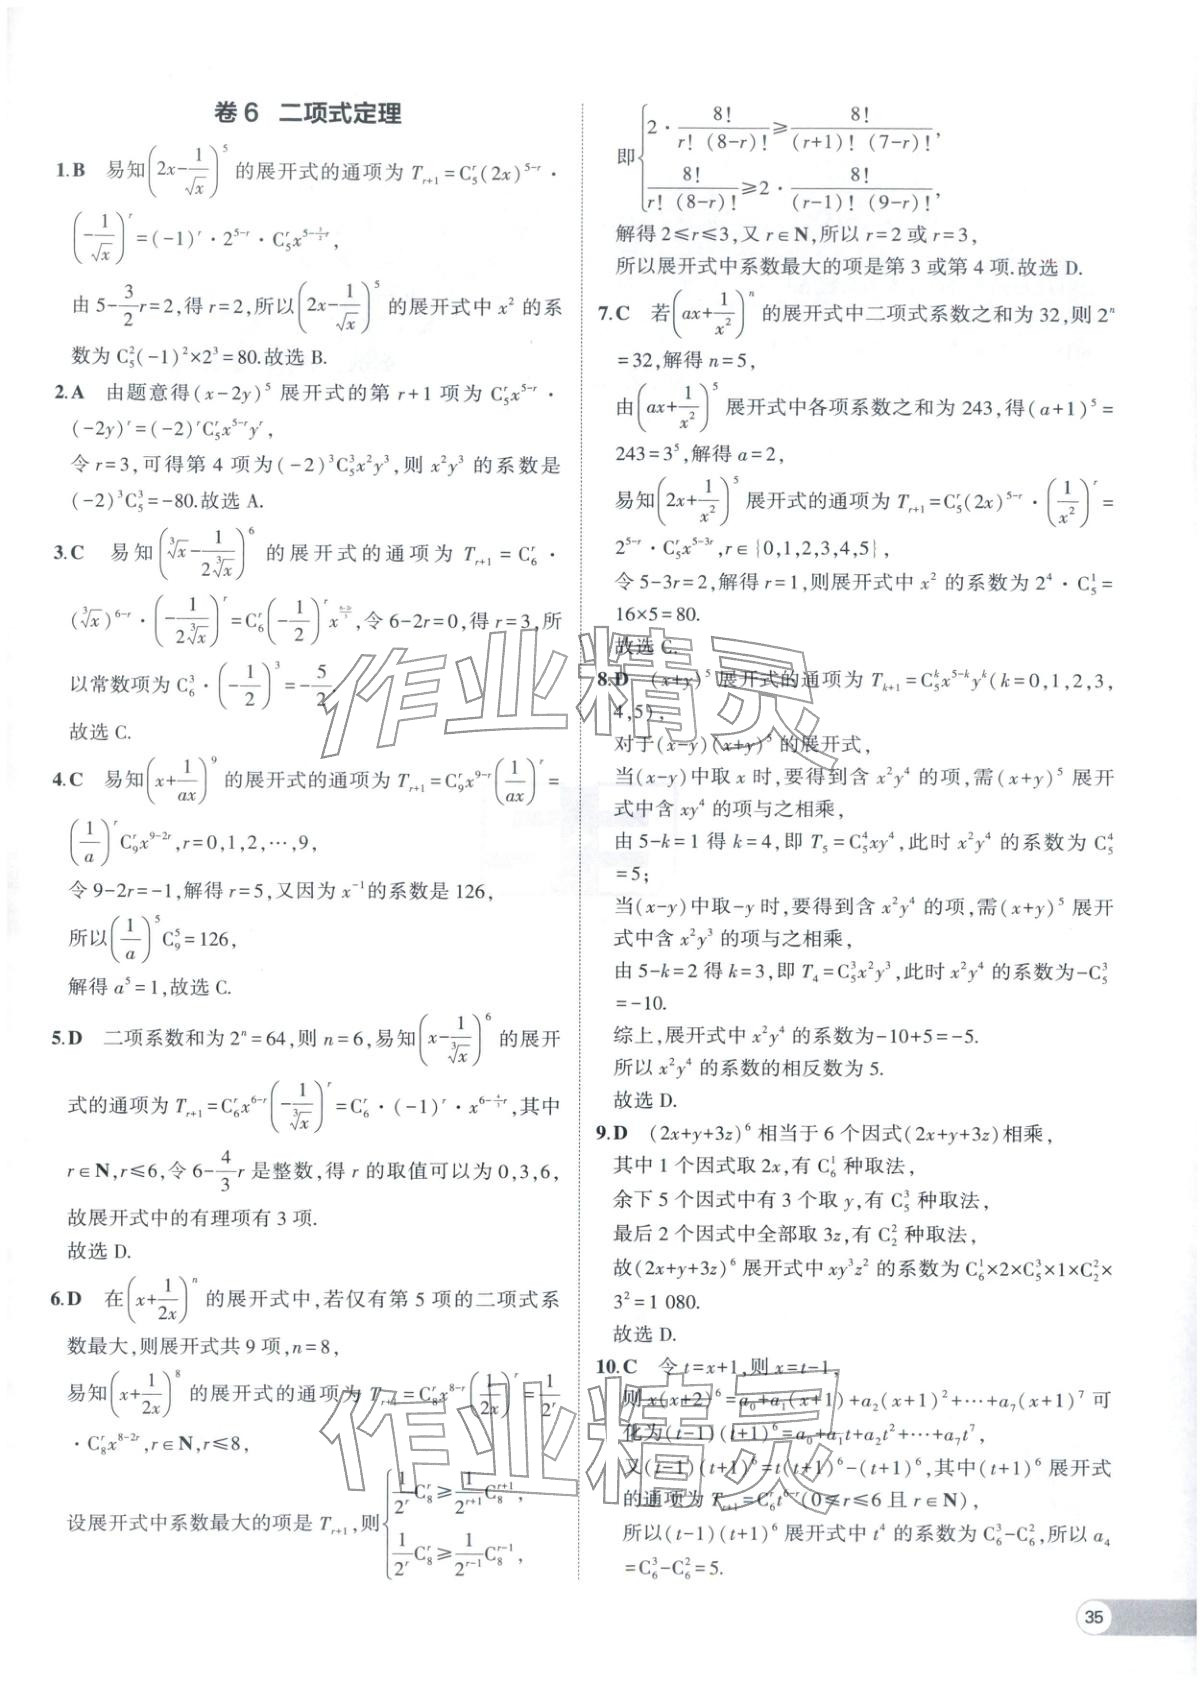 卷6 二项式定理
1.B 易知(2x-\frac{1}{\sqrt{x}})^5 的展开式的通项为 T_{r+1}=C_5^r(2x)^{5-r}·
(-\frac{1}{\sqrt{x}})^r=(-1)^r·2^{5-r}·C_5^r x^{5-\frac{3}{2}r},
由 5-\frac{3}{2}r=2,得 r=2,所以(2x-\frac{1}{\sqrt{x}})^5 的展开式中 x^2 的系
数为 C_5^2(-1)^2×2^3=80.故选 B.
2.A 由题意得(x-2y)^5 展开式的第 r+1 项为 C_5^r x^{5-r}·
(-2y)^r=(-2)^r C_5^r x^{5-r}y^r,
令 r=3,可得第 4 项为(-2)^3C_5^3x^2y^3,则 x^2y^3 的系数是
(-2)^3C_5^3=-80.故选 A.
3.C 易知(\sqrt[3]{x}-\frac{1}{2\sqrt[3]{x}})^6 的展开式的通项为 T_{r+1}=C_6^r·
(\sqrt[3]{x})^{6-r}·(-\frac{1}{2\sqrt[3]{x}})^r=C_6^r(-\frac{1}{2})^r x^{\frac{6-2r}{3}},令 6-2r=0,得 r=3,所
以常数项为 C_6^3·(-\frac{1}{2})^3=-\frac{5}{2}.
故选 C.
4.C 易知(x+\frac{1}{ax})^9 的展开式的通项为 T_{r+1}=C_9^r x^{9-r}(\frac{1}{ax})^r=
(\frac{1}{a})^r C_9^r x^{9-2r},r=0,1,2,…,9,
令 9-2r=-1,解得 r=5,又因为 x^{-1}的系数是 126,
所以(\frac{1}{a})^5 C_9^5=126,
解得 a^5=1,故选 C.
5.D 二项系数和为 2^n=64,则 n=6,易知(x-\frac{1}{\sqrt[3]{x}})^6 的展开
式的通项为 T_{r+1}=C_6^r x^{6-r}(-\frac{1}{\sqrt[3]{x}})^r=C_6^r·(-1)^r·x^{6-\frac{4}{3}r},其中
r∈N,r≤6,令 6-\frac{4}{3}r 是整数,得 r 的取值可以为 0,3,6,
故展开式中的有理项有 3 项.
故选 D.
6.D 在(x+\frac{1}{2x})^n 的展开式中,若仅有第 5 项的二项式系
数最大,则展开式共 9 项,n=8,
易知(x+\frac{1}{2x})^8 的展开式的通项为 T_{r+1}=C_8^r x^{8-r}(\frac{1}{2x})^r=\frac{1}{2^r}
·C_8^r x^{8-2r},r∈N,r≤8,
设展开式中系数最大的项是 T_{r+1},则{\frac{1}{2^r}C_8^r≥\frac{1}{2^{r+1}}C_8^{r+1},
\frac{1}{2^r}C_8^r≥\frac{1}{2^{r-1}}C_8^{r-1},
即{2·\frac{8!}{r!(8-r)!}≥\frac{8!}{(r+1)!(7-r)!},
\frac{8!}{r!(8-r)!}≥2·\frac{8!}{(r-1)!(9-r)!},
解得 2≤r≤3,又 r∈N,所以 r=2 或 r=3,
所以展开式中系数最大的项是第 3 或第 4 项.故选 D.
7.C 若(ax+\frac{1}{x^2})^n 的展开式中二项式系数之和为 32,则 2^n
=32,解得 n=5,
由(ax+\frac{1}{x^2})^5 展开式中各项系数之和为 243,得(a+1)^5=
243=3^5,解得 a=2,
易知(2x+\frac{1}{x^2})^5 展开式的通项为 T_{r+1}=C_5^r(2x)^{5-r}·(\frac{1}{x^2})^r=
2^{5-r}·C_5^r x^{5-3r},r∈{0,1,2,3,4,5},
令 5-3r=2,解得 r=1,则展开式中 x^2 的系数为 2^4·C_5^1=
16×5=80.
故选 C.
8.D (x+y)^5 展开式的通项为 T_{k+1}=C_5^k x^{5-k}y^k(k=0,1,2,3,
4,5),
对于(x-y)(x+y)^5 的展开式,
当(x-y)中取 x 时,要得到含 x^2y^4 的项,需(x+y)^5 展开
式中含 xy^4 的项与之相乘,
由 5-k=1 得 k=4,即 T_5=C_5^4xy^4,此时 x^2y^4 的系数为 C_5^4
=5;
当(x-y)中取-y 时,要得到含 x^2y^4 的项,需(x+y)^5 展开
式中含 x^2y^3 的项与之相乘,
由 5-k=2 得 k=3,即 T_4=C_5^3x^2y^3,此时 x^2y^4 的系数为-C_5^3
=-10.
综上,展开式中 x^2y^4 的系数为-10+5=-5.
所以 x^2y^4 的系数的相反数为 5.
故选 D.
9.D (2x+y+3z)^6 相当于 6 个因式(2x+y+3z)相乘,
其中 1 个因式取 2x,有 C_6^1 种取法,
余下 5 个因式中有 3 个取 y,有 C_5^3 种取法,
最后 2 个因式中全部取 3z,有 C_2^2 种取法,
故(2x+y+3z)^6 展开式中 xy^3z^2 的系数为 C_6^1×2×C_5^3×1×C_2^2×
3^2=1 080.
故选 D.
10.C 令 t=x+1,则 x=t-1,
则 x(x+2)^6=a_0+a_1(x+1)+a_2(x+1)^2+…+a_7(x+1)^7 可
化为(t-1)(t+1)^6=a_0+a_1t+a_2t^2+…+a_7t^7,
又(t-1)(t+1)^6=t(t+1)^6-(t+1)^6,其中(t+1)^6 展开式
的通项为 T_{r+1}=C_6^r t^{6-r}(0≤r≤6 且 r∈N),
所以(t-1)(t+1)^6 展开式中 t^4 的系数为 C_6^3-C_6^2,所以 a_4
=C_6^3-C_6^2=5.
作业精灵
作业精灵
35